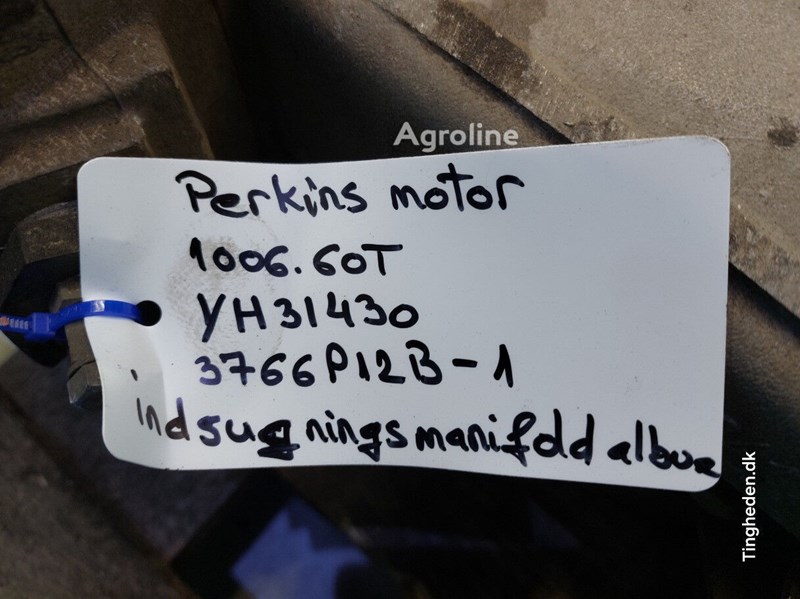 Agroline
Perkins motor
1006.60T
YH31430
3766P12B-1
indsugningsmanifold albue
Tingheden.dk